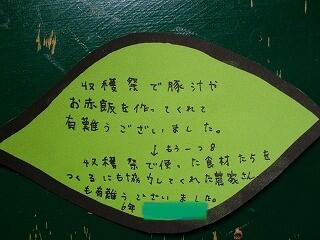 収穫祭で豚汁や
お赤飯を作ってくれて
有難うございました。
↓もう一つ8
収穫祭で使った食材たちを
つくるにも協力してくれた農家さん
も有難うございました。
6年